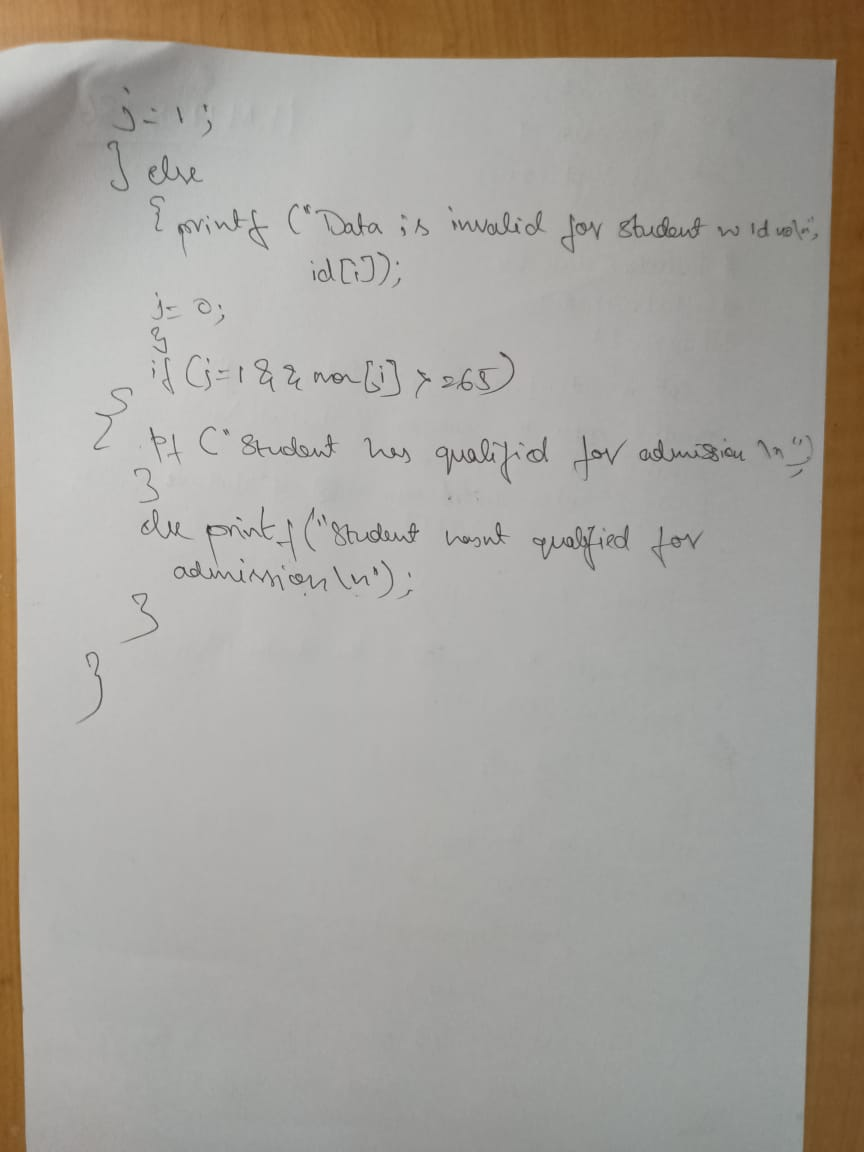 j=1;
} else
{ printf ("Data is invalid for student w Id no\n",
id[i]);
j= 0;
}
if (j=1 && mar[i] >=265)
{ pf ("Student has qualified for admission \n");
}
else printf ("Student hasnt qualified for
admission\n");
}
}